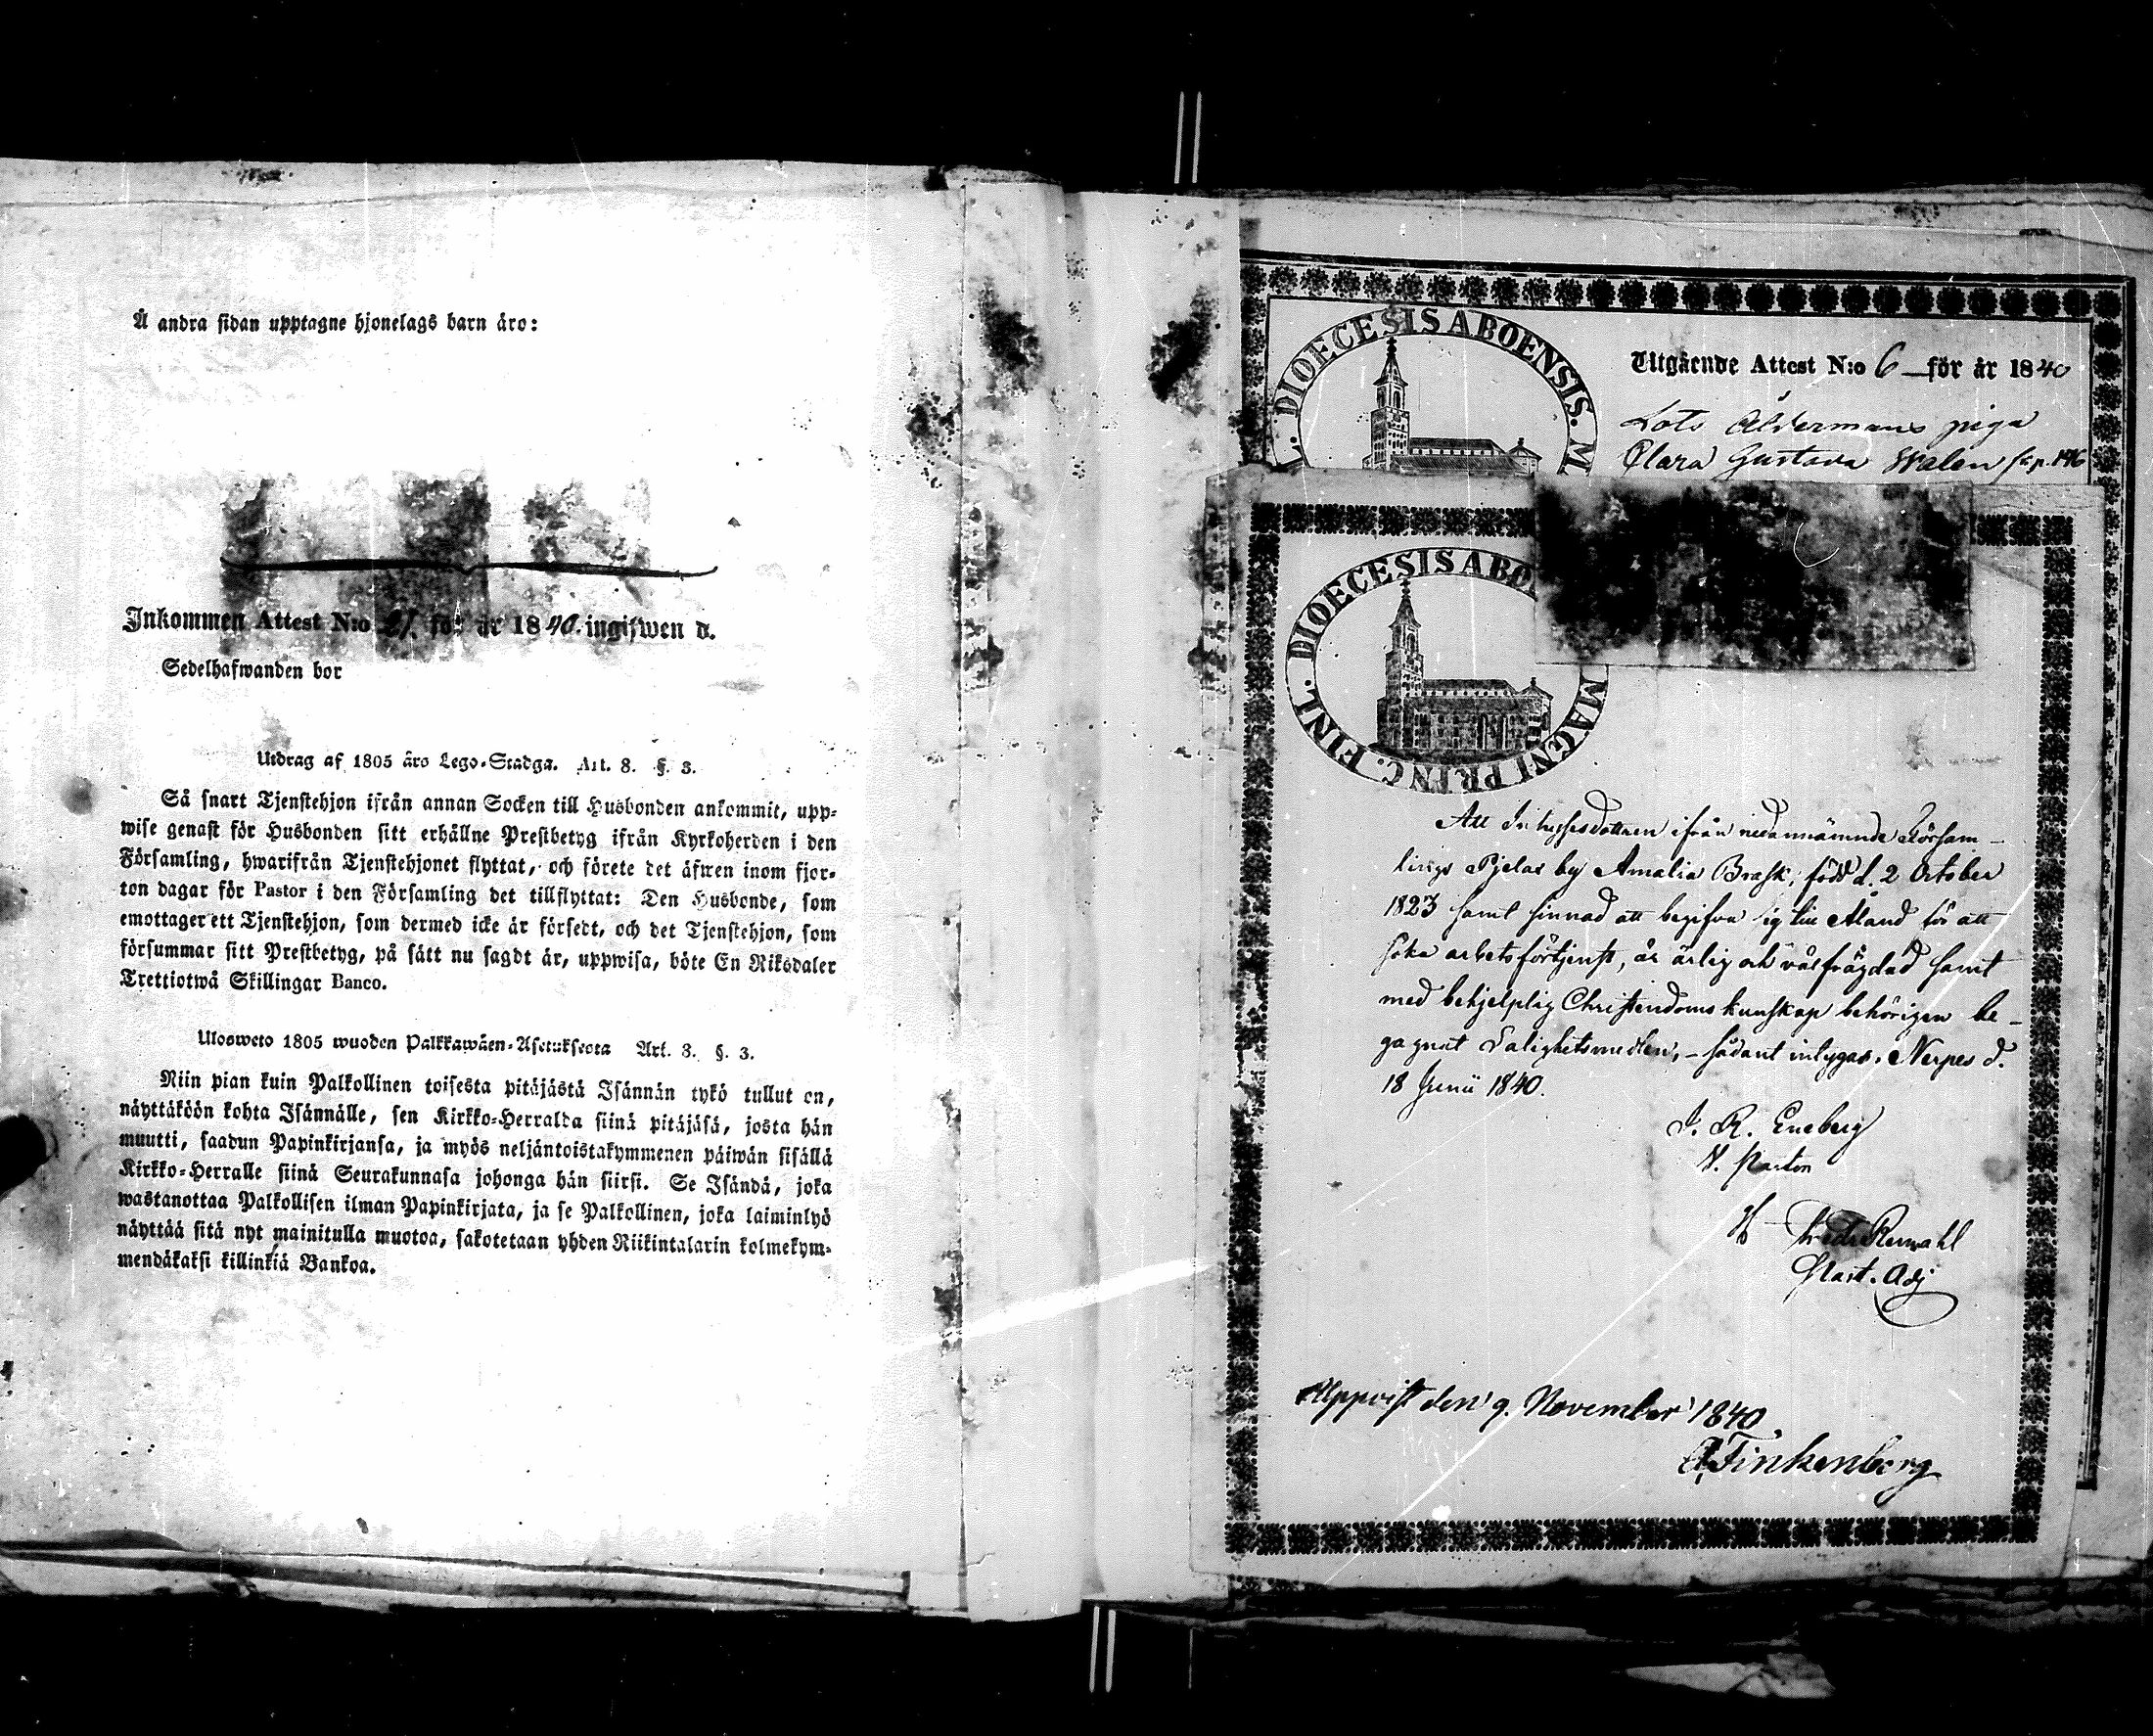 Å andra sidan upptagne hjonelags barn äro:
Inkommen Attest N:o 21. för år 1840. ingifwen d.
Sedelhafwanden bor
Utdrag af 1805 års Lego-Stadga. Art. 8. §. 3.
Så snart Tjenstehjon ifrån annan Socken till Husbonden ankommit, upp-
wise genast för Husbonden sitt erhållne Prestbetyg ifrån Kyrkoherden i den
Församling, hwarifrån Tjenstehjonet flyttat, och förete det äfwen inom fjor-
ton dagar för Pastor i den Församling det tillflyttat: Den Husbonde, som
emottager ett Tjenstehjon, som dermed icke är försedt, och det Tjenstehjon, som
försummar sitt Prestbetyg, på sätt nu sagdt är, uppwisa, böte En Riksdaler
Trettiotwå Skillingar Banco.
Ulosweto 1805 wuoden Palkkawäen-Asetuksesta Art. 8. §. 3.
Niin pian kuin Palkollinen toisesta pitäjästä Isännän tykö tullut on,
näyttäköön kohta Isännälle, sen Kirkko-Herralda siinä pitäjäsä, josta hän
muutti, saadun Papinkirjansa, ja myös neljäntoistakymmenen päiwän sisällä
Kirkko-Herralle siinä Seurakunnasa johonga hän siirsi. Se Isändä, joka
wastanottaa Palkollisen ilman Papinkirjata, ja se Palkollinen, joka laiminlyö
näyttää sitä nyt mainitulla muotoa, sakotetaan yhden Riikintalarin kolmekym-
mendäkaksi killinkiä Bankoa.
DIOECESIS ABOENSIS. M
Utgående Attest N:o 6 för år 1840
Lots Åldermans piga
Clara Gustava Walen pag. 146
DIOECESIS ABO
MAGNI PRINC. FINL.
Att Inhysesdottren ifrån nedannämnde Försam-
lings Pjelax by Amalia Brask, född d. 2 October
1823 samt sinnad att begifva sig till Åland för att
söka arbetsförtjenst, är ärlig och välfrägdad samt
med behjelplig Christendoms kunskap behörigen be-
gagnat Salighetsmedlen, - sådant intygas. Nerpes d.
18 Junii 1840.
J. R. Eneberg
V. Pastor
Past. Adj
Uppvist den 9. November 1840
A Finkenberg